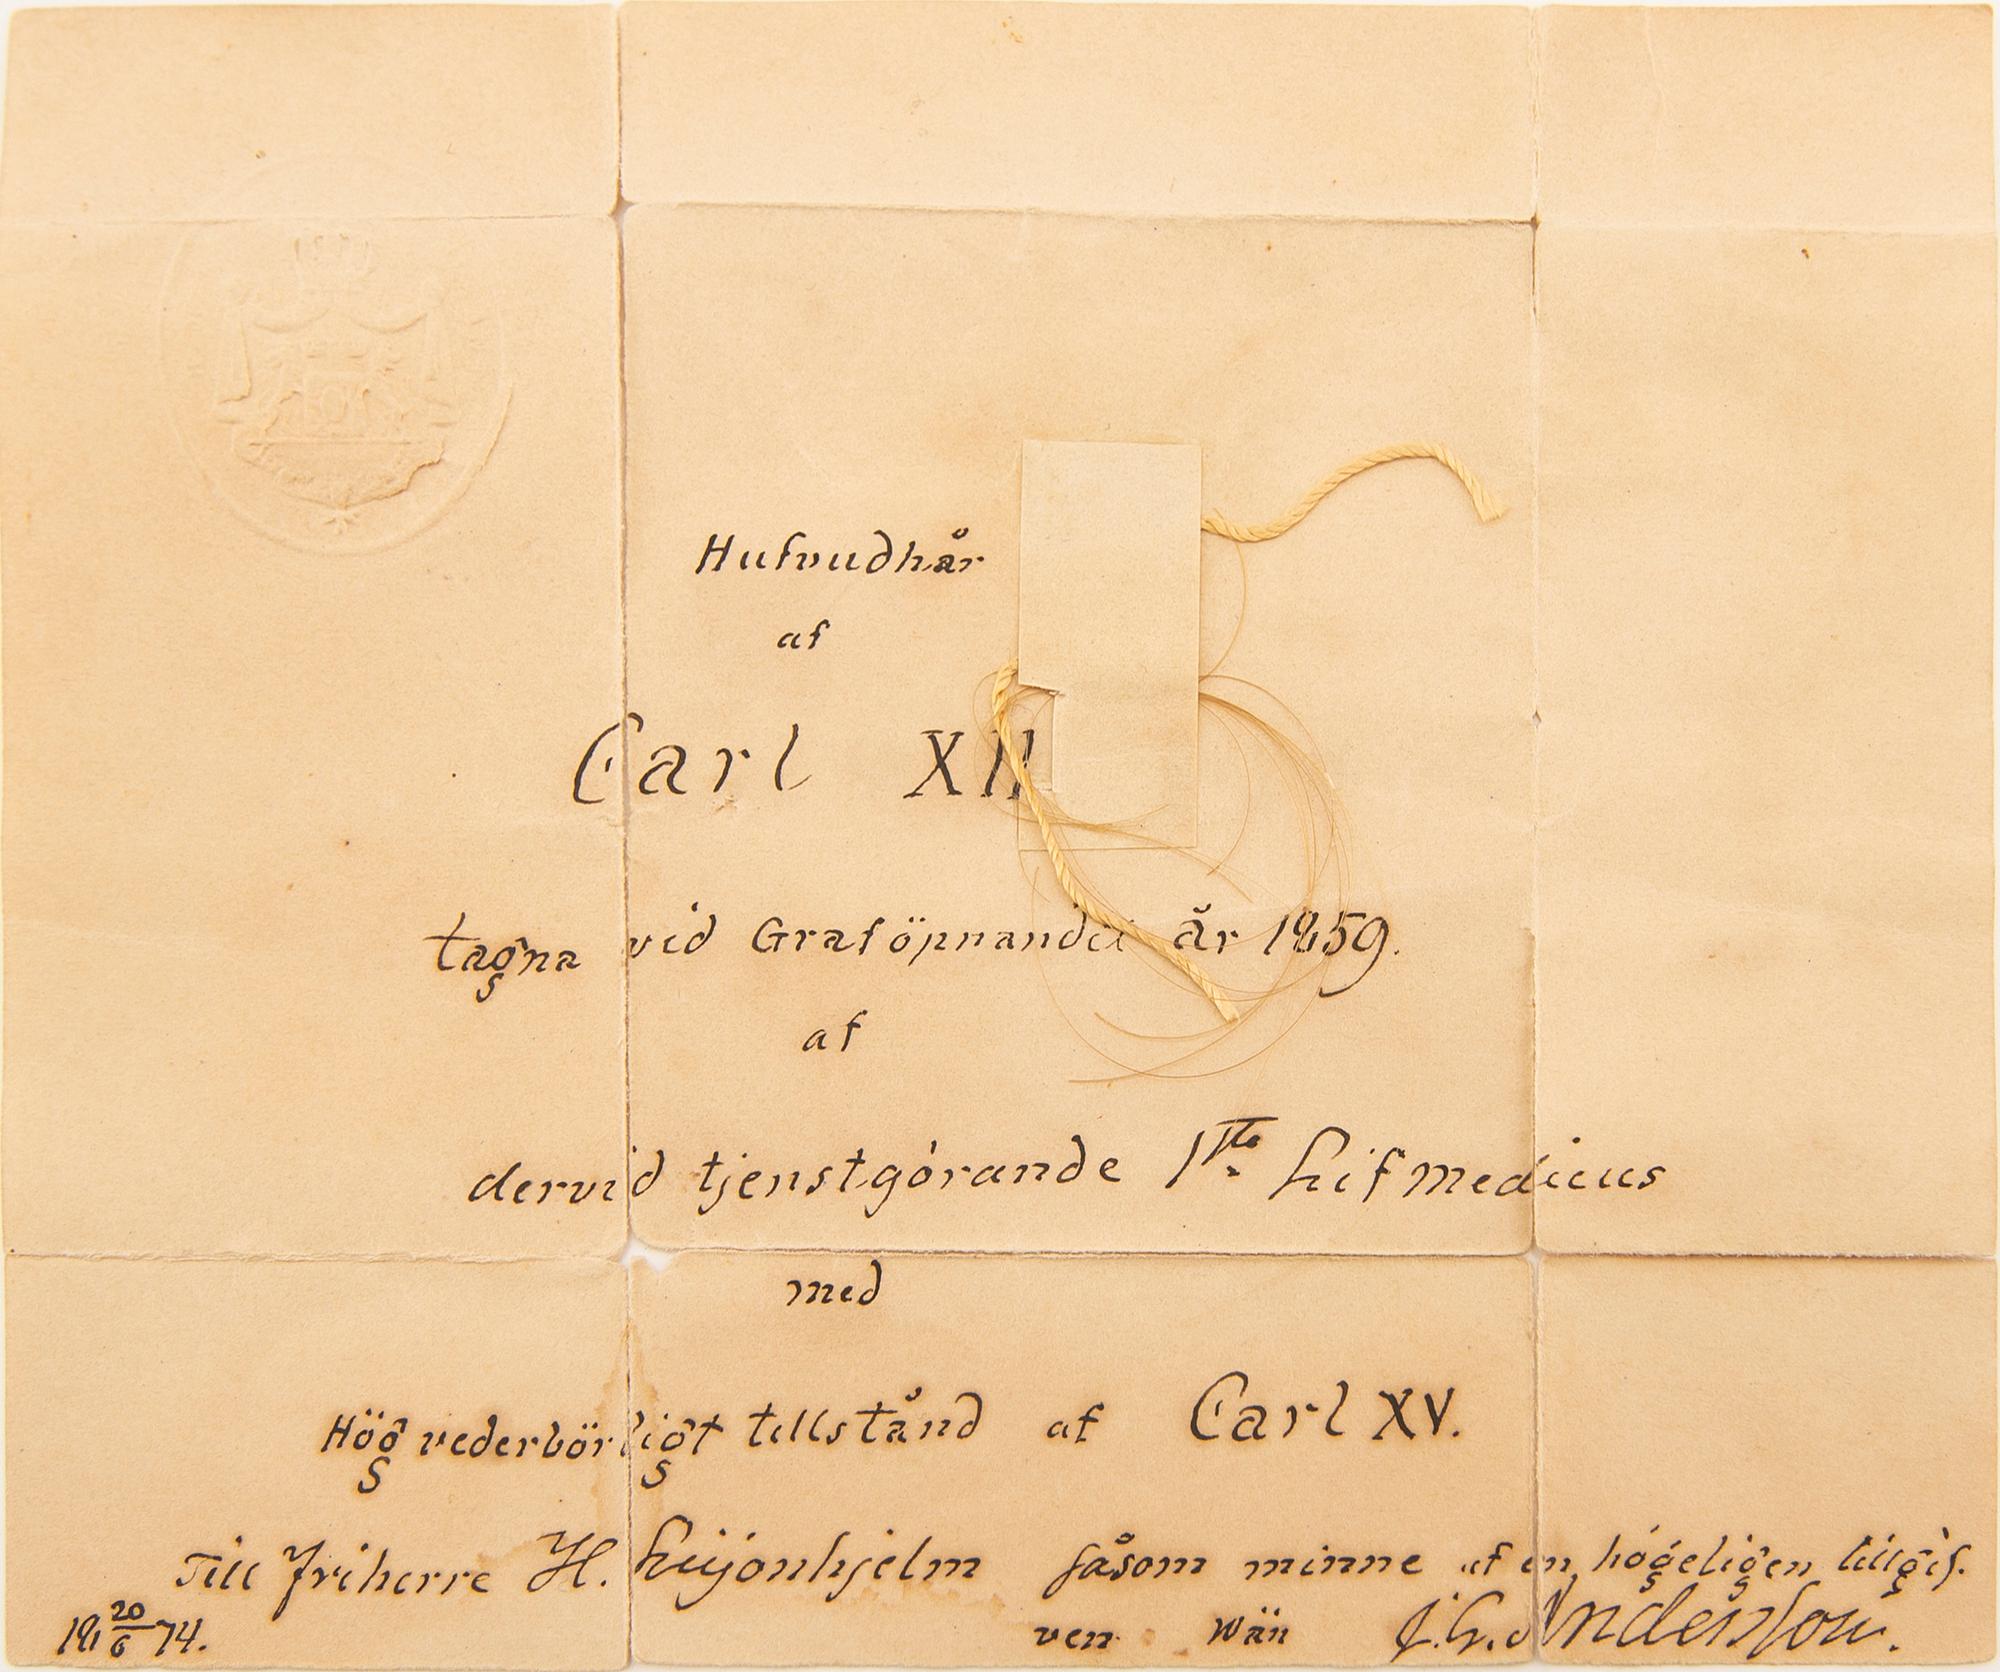 Hufvudhår
af
Carl XII
tagna vid Graföpnandet år 1859.
af
dervid tjenstgörande 1ste Lifmedicus
med
Hög vederbörligt tillstånd af Carl XV.
Till Friherre H. Leijonhjelm såsom minne af en högeligen tillgif-
ven wän J.G. Andersson.
18 20/6 74.